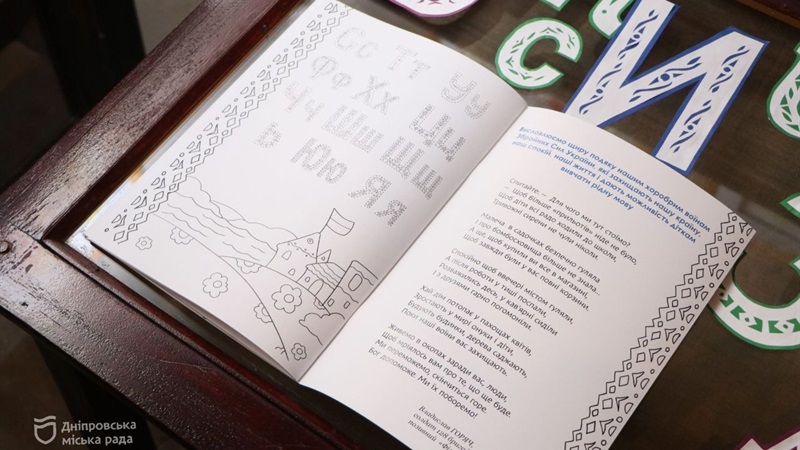 Сс Тт Уу
Фф Хх Цц
Чч Шш Щщ
ь Юю Яя
С
И
З
Висловлюємо щиру подяку нашим хоробрим воїнам
Збройних Сил України, які захищають нашу країну,
наш спокій, наші життя і дають можливість діткам
вивчати рідну мову
Спитайте – Для чого ми тут стоїмо?
– Щоб більше «прильотів» ніде не було,
Щоб діти всі радо ходили до школи
Тривожні сирени не чули ніколи.
Малеча в садочках безпечно гуляла
І про бомбосховища більше не знала.
А ще, щоб купили ви все в магазині,
Щоб завжди були у вас повні корзини.
Спокійно щоб ввечері містом гуляли,
А після роботи у тиші поспали,
Розважились десь, у кав'ярні сиділи
І з друзями гарно погомоніли.
Хай дім потопає у пахощах квітів,
Зростають у мирі онуки і діти,
Будують будинки, дерева саджають,
Поки наші воїни вас захищають.
Живемо в окопах заради вас, люди,
Щоб мріялось вам про те, що ще буде.
Ми переможемо, скінчиться горе.
Бог допоможе. Ми їх поборемо!
Владислав ГОРЯЧ,
солдат 128 бригад
позивний
Дніпровська
міська рада